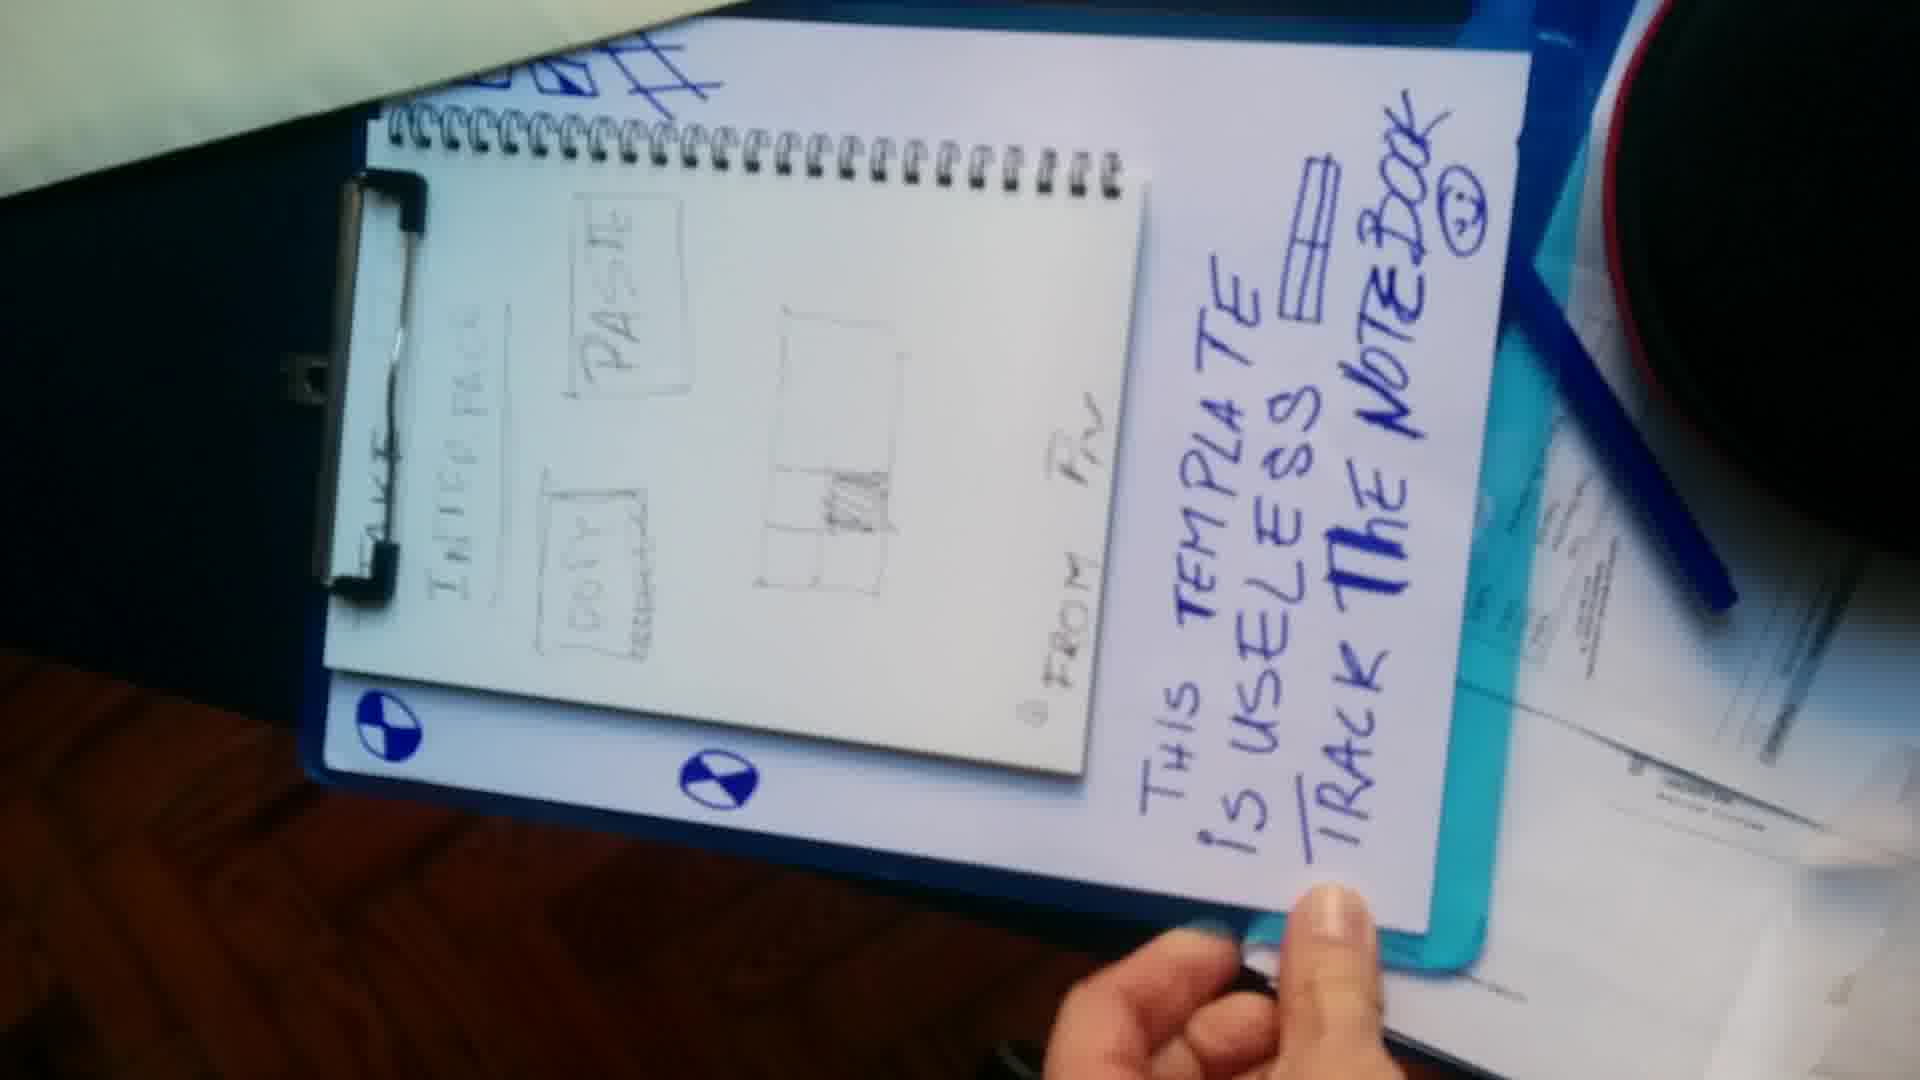 TAKE
INTERFACE
COPY
PASTE
FROM
THIS TEMPLATE
IS USELESS
TRACK THE NOTEBOOK